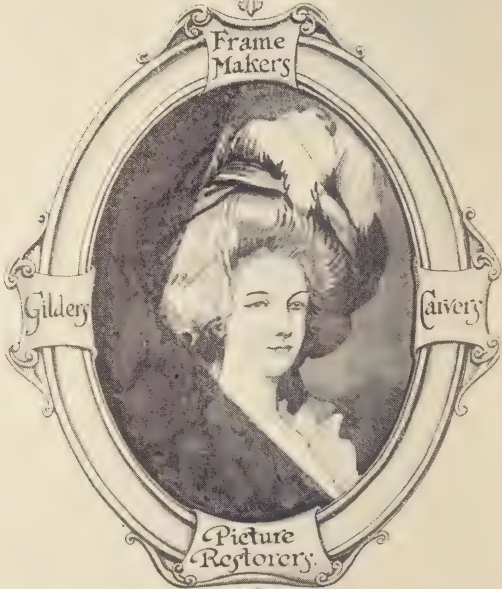 Frame
Makers
Gilders
Carvers
Picture
Restorers.